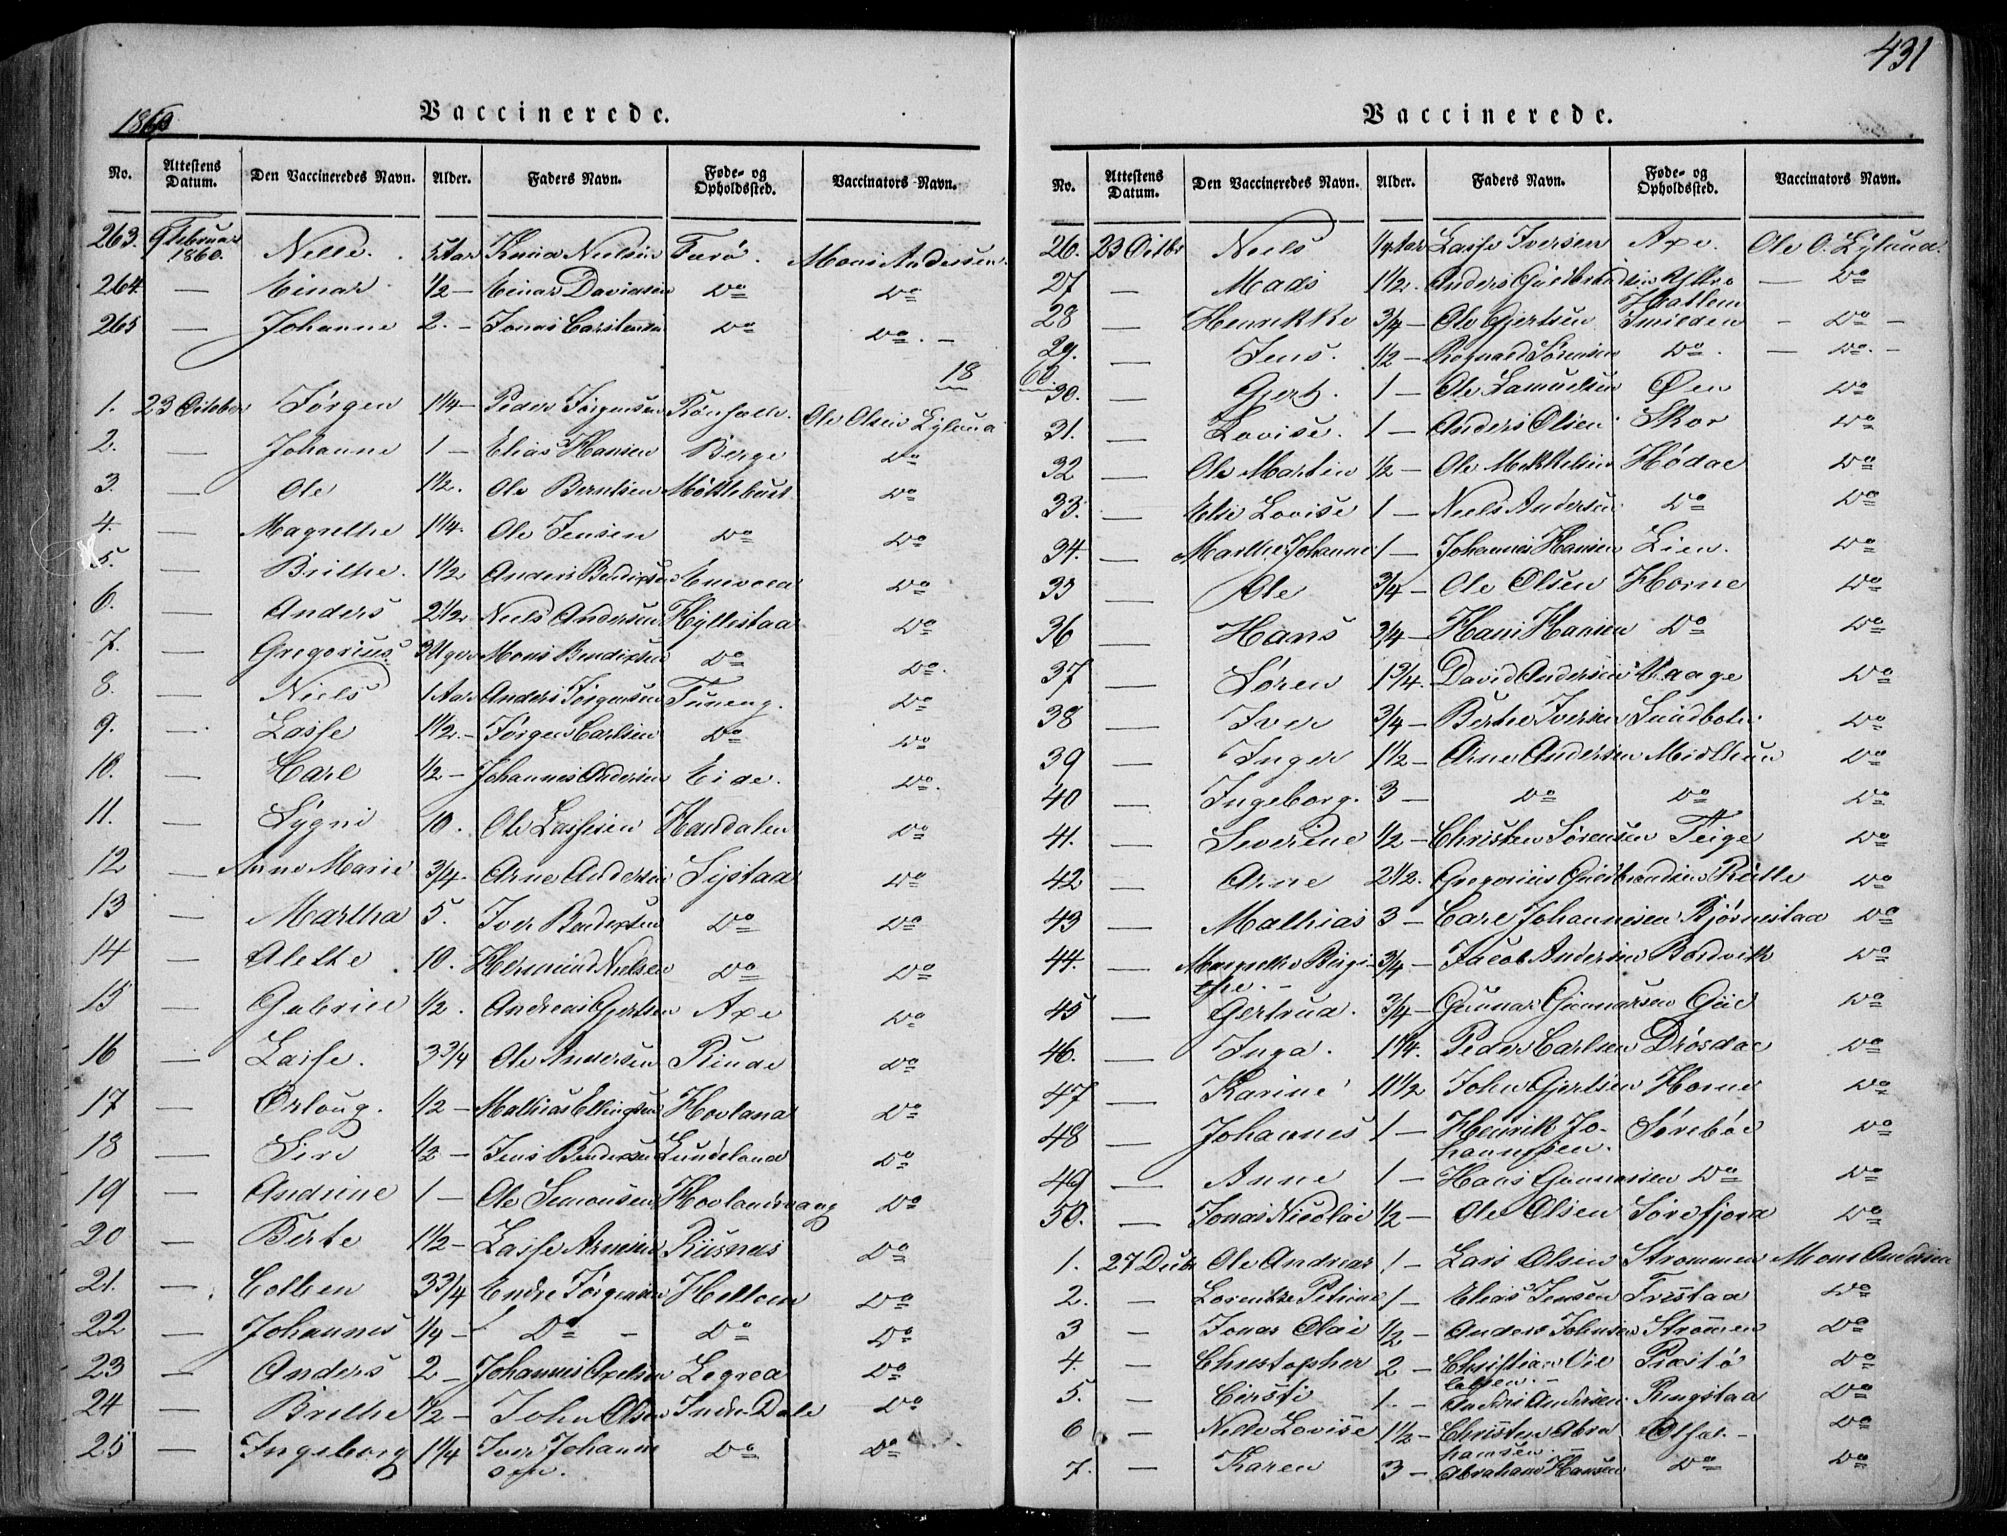 431
1860
Vaccinerede.
No. Attestens Datum. Den Vaccineredes Navn. Alder. Faders Navn. Føde- og Opholdssted. Vaccinators Navn.
263. 9 Februar 1860. Nelle. 5 Aar Knud Nielsen Furø. Mons Andersen.
264. — Einar ½ — Einar Davidsen Do Do
265 — Johanne 2. — Jonas Carstensen Do Do. —
18
1. 23 October Jørgen 1¼ — Peder Jørgensen Ole Olsen Eylund
2. — Johanne 1 — Elias Hansen Berge Do
3. — Ole 1½. Ole Berntsen Møklebust Do
4. — Magrethe 1¼. Ole Jensen Do Do
5. — Brithe. 1½ Anders Bendixsen Do
6. — Anders 2½ Niels Andersen Hyllestad Do
7. — Gregorius 3 Uger Mons Bendixsen Do Do.
8. — Niels 1 Aar Anders Jørgensen Tuneng. Do
9. — Lasse 1½. — Jørgen Carlsen Do Do
10. — Carl ½ — Johannes Andersen Eide. Do.
11. — Sygni 10. Ole Lassesen Do
12 — Anne Marie ¾. Arne Andersen Systad Do
13 — Martha 5. Iver Bendixsen Do Do
14 — Alethe 10. Hermund Nielsen Do Do
15 — Gabriel ½. Andreas Gjertsen Axe Do
16 — Lasse. 3¾ Ole Andersen Risnde Do
17 — Orloug. ½ — Mathias Ellingsen Hovland Do
18 — Siri ½ — Jens Bendixsen Lundeland Do
19 — Andrine 1 — Ole Simonsen Do
20 — Berte 1½ — Lasse Arnesen Riisnes Do
21. — Colben 3¾ Endre Jørgensen Do
22 — Johannes ¼ — Do — Do Do
23 — Anders 2 — Johannes Axelsen Legred Do
24 — Brithe ½ — John Olsen Indre Dale Do
25 — Ingeborg 1¼ Iver Johannesen. Do Do
Vaccinerede.
No. Attestens Datum. Den Vaccineredes Navn. Alder. Faders Navn. Føde- og Opholdssted. Vaccinators Navn.
26. 23 Octbr Niels ¼ Aar Lasse Iversen Axe. Ole O. Eylund.
27 — Mads 1½. Anders Gudbrandsen — Do
28 — Henrikke ¾ — Ole Gjertsen Smilden — Do —
29. — Jens. ½ — Rognald Sørensen Do. — Do. —
60
30. — Gjert. 1 — Ole Samuelsen Øen Do
31. — Lovise. 1 — Anders Olsen Skor Do
32 — Ole Martin ½ — Ole Mikkelsen Hødal Do
33. — Elsi Lovise 1 — Niels Andersen Do Do
34. — Marthe Johanne 1 — Johannes Hansen Lien. Do
35 — Ole ¾ — Ole Olsen Horne Do
36 — Hans ¾ — Hans Hansen Do Do
37 — Søren 1¾. David Andersen Vaage Do
38 — Iver ¾ — Berthel Iversen Sundbotn Do
39 — Inger 1½ — Arne Andersen Midthun Do
40 — Ingeborg. 3 — Do Do Do
41. — Severine ½ — Christen Sørensen Teige Do
42 — Arne 2½. Gregorius Gudbrandsen Risle Do
43 — Mathias 3 — Carl Johannesen Bjørnestad Do
44. — Margrethe Birgithe. — ¾ — Jacob Andersen Bordvik Do
45 — Gertrud. ¾ — Gunnar Gunnarsen Gjil Do
46. — Inga. 1¼. Peder Carlsen Drøsdal Do
47 — Karine 1½ John Gjertsen Horne Do
48 — Johannes 1 — Henrik Johannsen. Sørebøe Do
49 — Anne 1 — Hans Gunnarsen Do Do
50. — Jonas Nicolai ½ — Ole Olsen Sørefjord Do
1. 27 Decbr Ole Andreas 1 — Lars Olsen Strommen Mons Andersen
2. — Lorentze Petrine 1 — Elias Jensen Tristad Do
3 — Jonas Olai ½ — Anders Johnsen Strommen Do
4. — Christopher 2 — Christian Ole Olsen. — Præstø Do
5. — Cirsti 1. — Andres Andersen. Ringstad Do
6 — Nelle Lovise 1½ — Christen Abrahamsen. — Do
7. — Karen 3 — Abraham Hansen Do Do